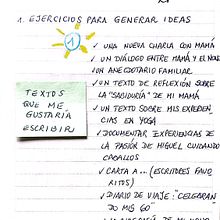 1. EJERCICIOS PARA GENERAR IDEAS
1
✓ UNA NUEVA CHARLA CON MAMÁ
✓ UN DIÁLOGO ENTRE MAMÁ Y EL
✓ UN ANECDOTARIO FAMILIAR
✓ UN TEXTO DE REFLEXIÓN SOBRE
LA "SABIDURÍA" DE MI MAMÁ
✓ UN TEXTO SOBRE MIS EXPERIEN
CIAS EN YOGA
✓ DOCUMENTAR EXPERIENCIAS DE
LA PASIÓN DE MIGUEL CUIDANDO
CABALLOS
✓ CARTA A... (ESCRITORES FAVO
RITOS)
✓ DIARIO DE VIAJE:
TEXTOS
QUE ME
GUSTARÍA
ESCRIBIR